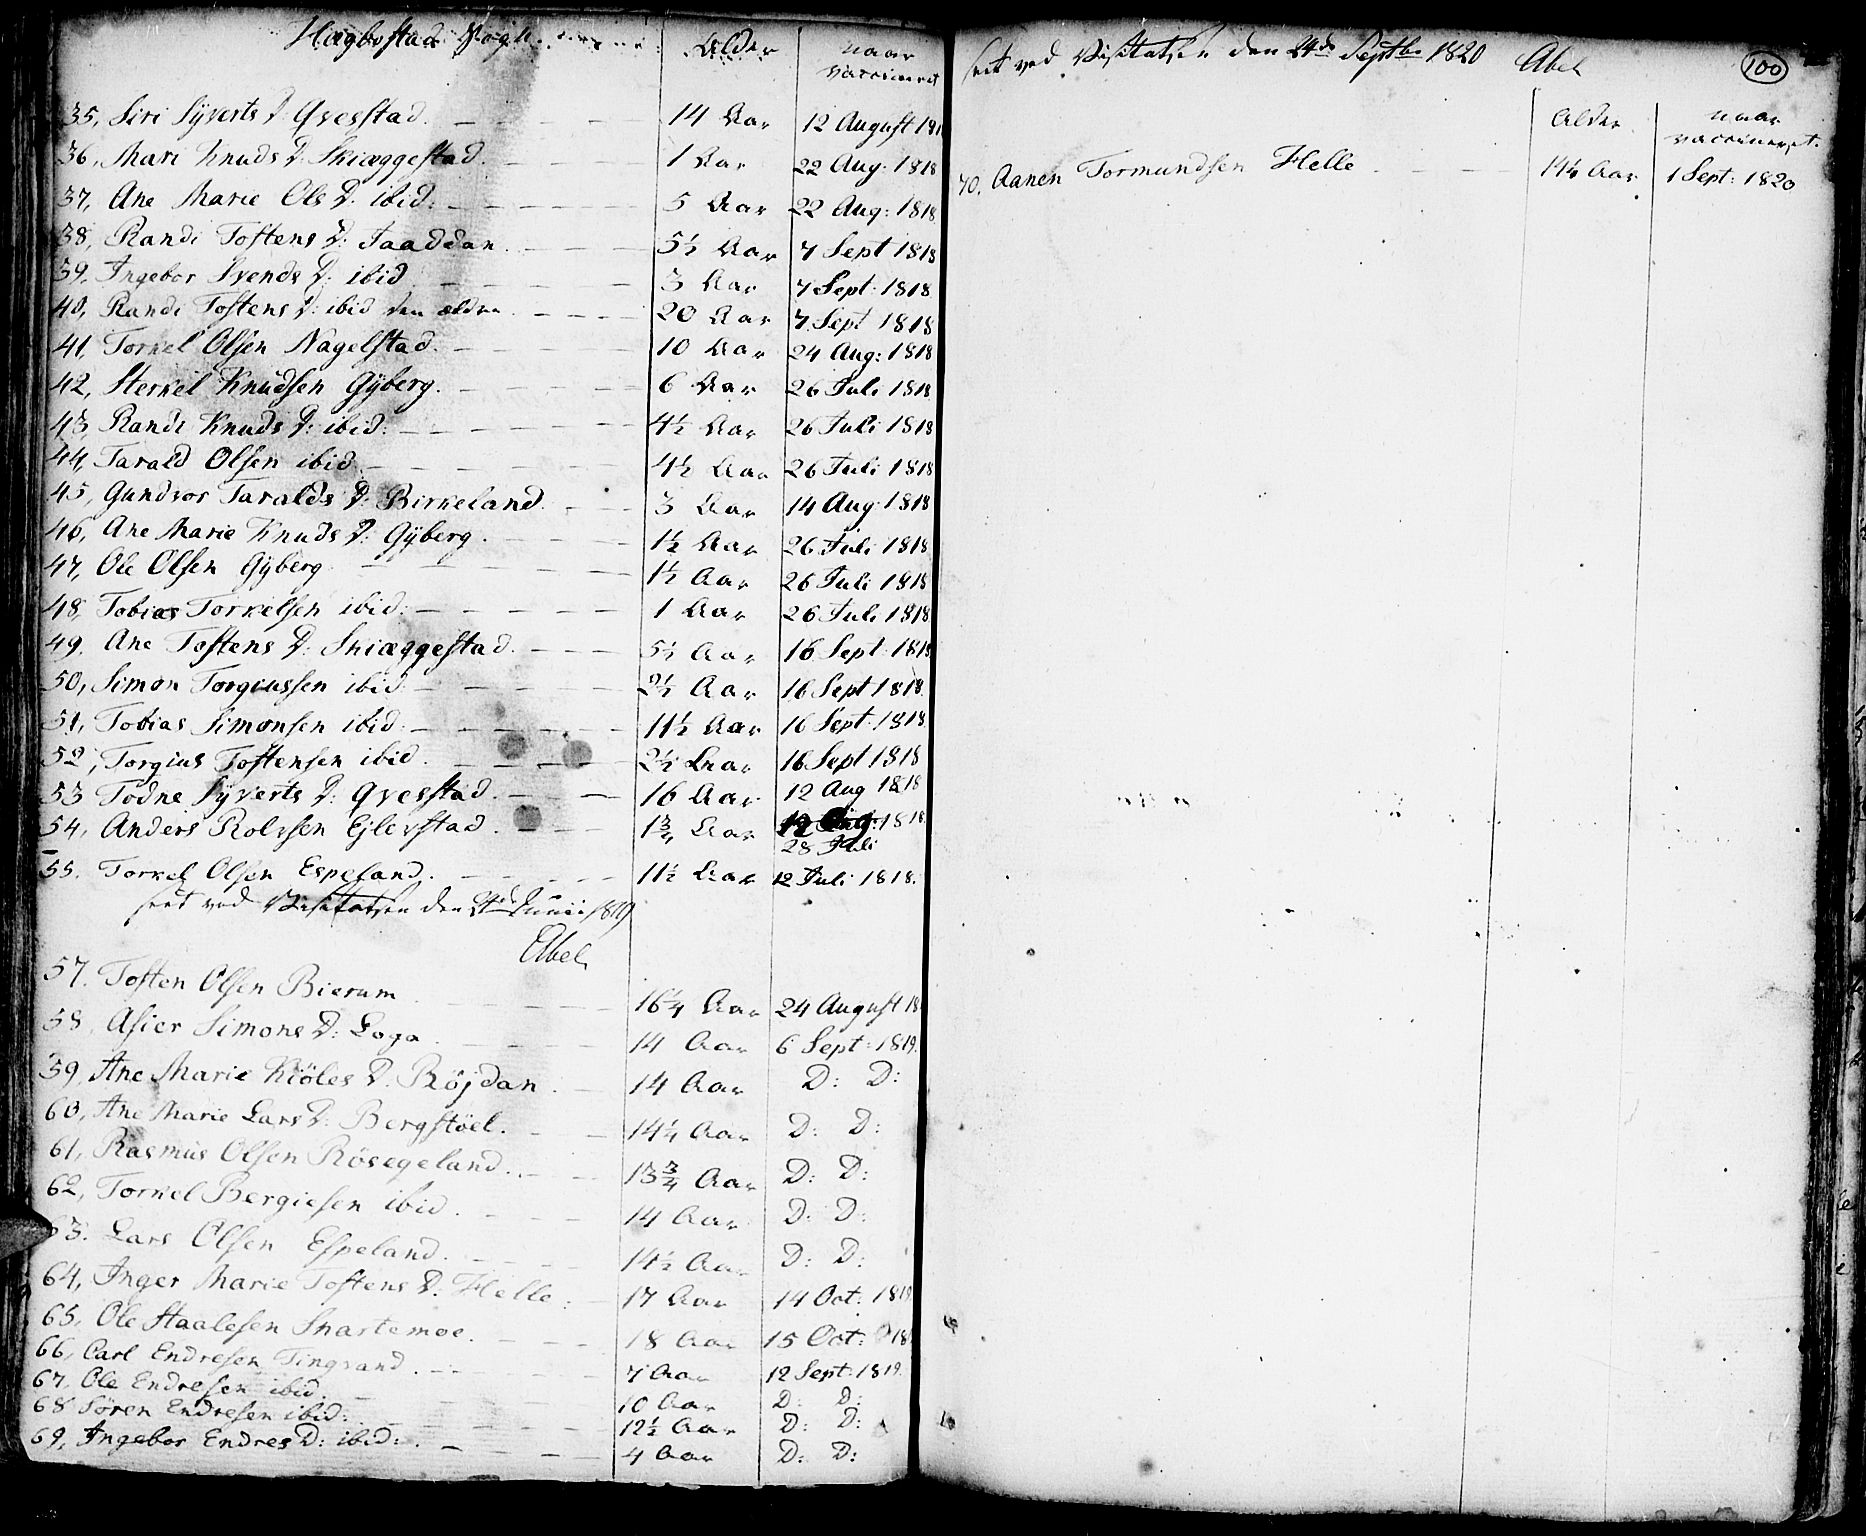 Hægbostad Sogn
Alder
naar
vaccineret
35, Siri Syverts D: Qvesstad. 14 Aar 12 August 181
36, Mari Knuds D: Skiæggestad. 1 Aar 22 Aug: 1818
37, Ane Marie Ols D: ibid: 5 Aar 22 Aug: 1818
38, Randi Tostens D: Jaaddan 5½ Aar 7 Sept 1818
39, Ingebor Svends D: ibid 3 Aar 7 Sept: 1818
40, Randi Tostens D: ibid den ældre 20 Aar 7 Sept 1818
41, Torkel Olsen Nagelstad. 10 Aar 24 Aug: 1818
42, Sterkel Knudsen Gyberg. 6 Aar 26 Juli 1818
43, Randi Knuds D: ibid: 4½ Aar 26 Juli 1818
44, Tarald Olsen ibid 4½ Aar 26 Juli 1818
45, Gundvor Taralds D: Birkeland. 3 Aar 14 Aug: 1818
46, Ane Marie Knuds D: Gyberg. 1½ Aar 26 Juli 1818
47, Ole Olsen Gyberg 1½ Aar 26 Juli 1818
48, Tobias Torkelsen ibid: 1 Aar 26 Juli 1818
49, Ane Tostens D: Skiæggestad. 5½ Aar 16 Sept: 1818
50, Simon Torgiussen ibid: 2½ Aar 16 Sept 1818
51, Tobias Simonsen ibid: 11½ Aar 16 Sept: 1818
52, Torgius Tostensen ibid. 2½ Aar 16 Sept 1818
53 Todne Syverts D: Qvesstad. 16 Aar 12 Aug 1818
54, Anders Rolvsen Ejlerstad. 1¾ Aar 12 Aug: 1818
28 Juli
55. Torkel Olsen Espeland. 11½ Aar 12 Juli 1818.
seet ved Visitatsen den Junii 1819
Abel
57. Tosten Olsen Bierum 16¼ Aar 24 August 18
58, Asier Simons D: Loga 14 Aar 6 Sept: 1819.
59, Ane Marie Kiöles D. Röjdan 14 Aar D: D:
60, Ane Marie Lars D: Bergstöel. 14¼ Aar D: D:
61, Rasmus Olsen Rösegeland. 13¾ Aar D: D:
62, Torkel Bergiesen ibid. 14 Aar D: D:
63. Lars Olsen Espeland. 14½ Aar D: D:
64, Inger Marie Tostens D: Helle: 17 Aar 14 Oct: 1819
65, Ole Staalesen Snartemoe. 18 Aar 15 Oct: 18
66, Carl Endresen Tingvand. 7 Aar 12 Sept: 1819.
67, Ole Endresen ibid. 10 Aar D: D:
68 Sören Endresen ibid: 12½ Aar D: D:
69, Ingebor Endres D: ibid: 4 Aar D: D:
seet ved Visitatsen den 24de Septbr 1820 Abel
100
Alder
naar
vaccineret.
70, Aanen Tormundsen Helle 14½ Aar 1 Sept: 1820